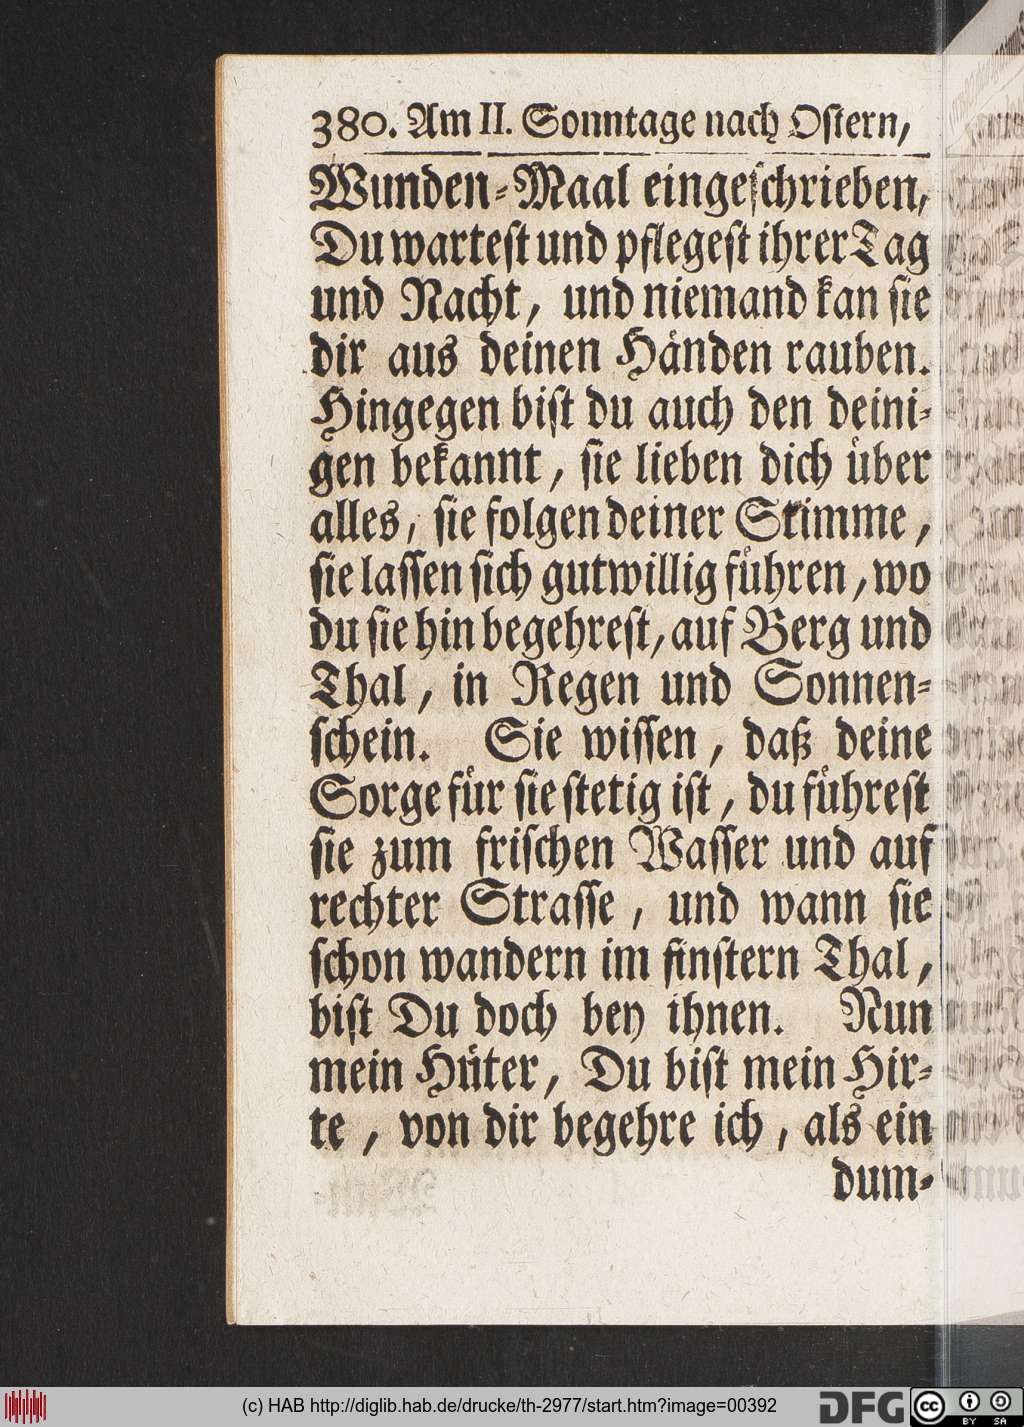 380. Am II. Sonntage nach Ostern,
Wunden-Maal eingeschrieben,
Du wartest und pflegest ihrer Tag
und Nacht, und niemand kan sie
dir aus deinen Händen rauben.
Hingegen bist du auch den deini-
gen bekannt, sie lieben dich über
alles, sie folgen deiner Stimme,
sie lassen sich gutwillig führen, wo
du sie hin begehrest, auf Berg und
Thal, in Regen und Sonnen-
schein. Sie wissen, daß deine
Sorge für sie stetig ist, du führest
sie zum frischen Wasser und auf
rechter Strasse, und wann sie
schon wandern im finstern Thal,
bist Du doch bey ihnen. Nun
mein Hüter, Du bist mein Hir-
te, von dir begehre ich, als ein
dum-
(c) HAB http://diglib.hab.de/drucke/th-2977/start.htm?image=00392
DFG
cc BY SA